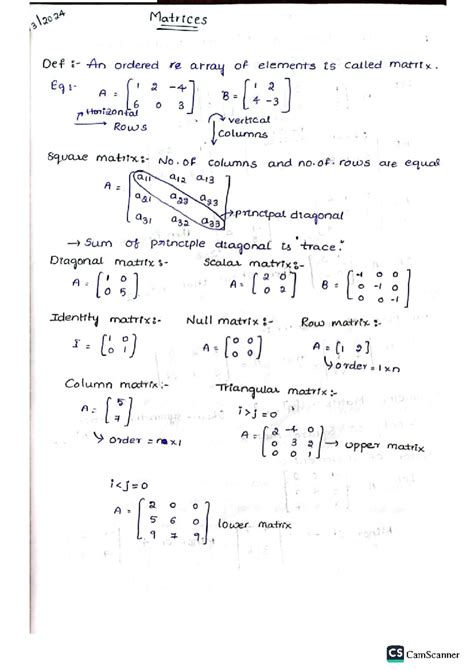 3/2024
Matrices
Def :- An ordered re array of elements is called matrix.
Eg :- A = [1 2 -4 B = [1 2
6 0 3] 4 -3]
Horizontal → Rows vertical columns
Square matrix:- No. of columns and no. of. rows are equal
A = [a11 a12 a13
a21 a23 a33
a31 a32 a33] → principal diagonal
→ Sum of principle diagonal is "trace."
Diagonal matrix :- Scalar matrix :-
A = [1 0 A = [2 0 B = [-1 0 0
0 5] 0 2] 0 -1 0
0 0 -1]
Identity matrix:- Null matrix :- Row matrix :-
I = [1 0 A = [0 0 A = [1 2]
0 1] 0 0] order = 1xn
Column matrix:- Triangular matrix:-
A = [5 i>j=0
7] A = [2 -4 0
order = nx1 0 3 2 → upper matrix
0 0 1]
i<j=0
A = [2 0 0
5 6 0 lower matrix
9 7 9]
CS CamScanner